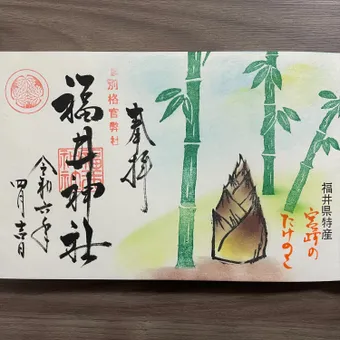 福井県特産
宮崎の
たけのこ
奉拝
別格官弊社
福井神社
令和六年
四月吉日